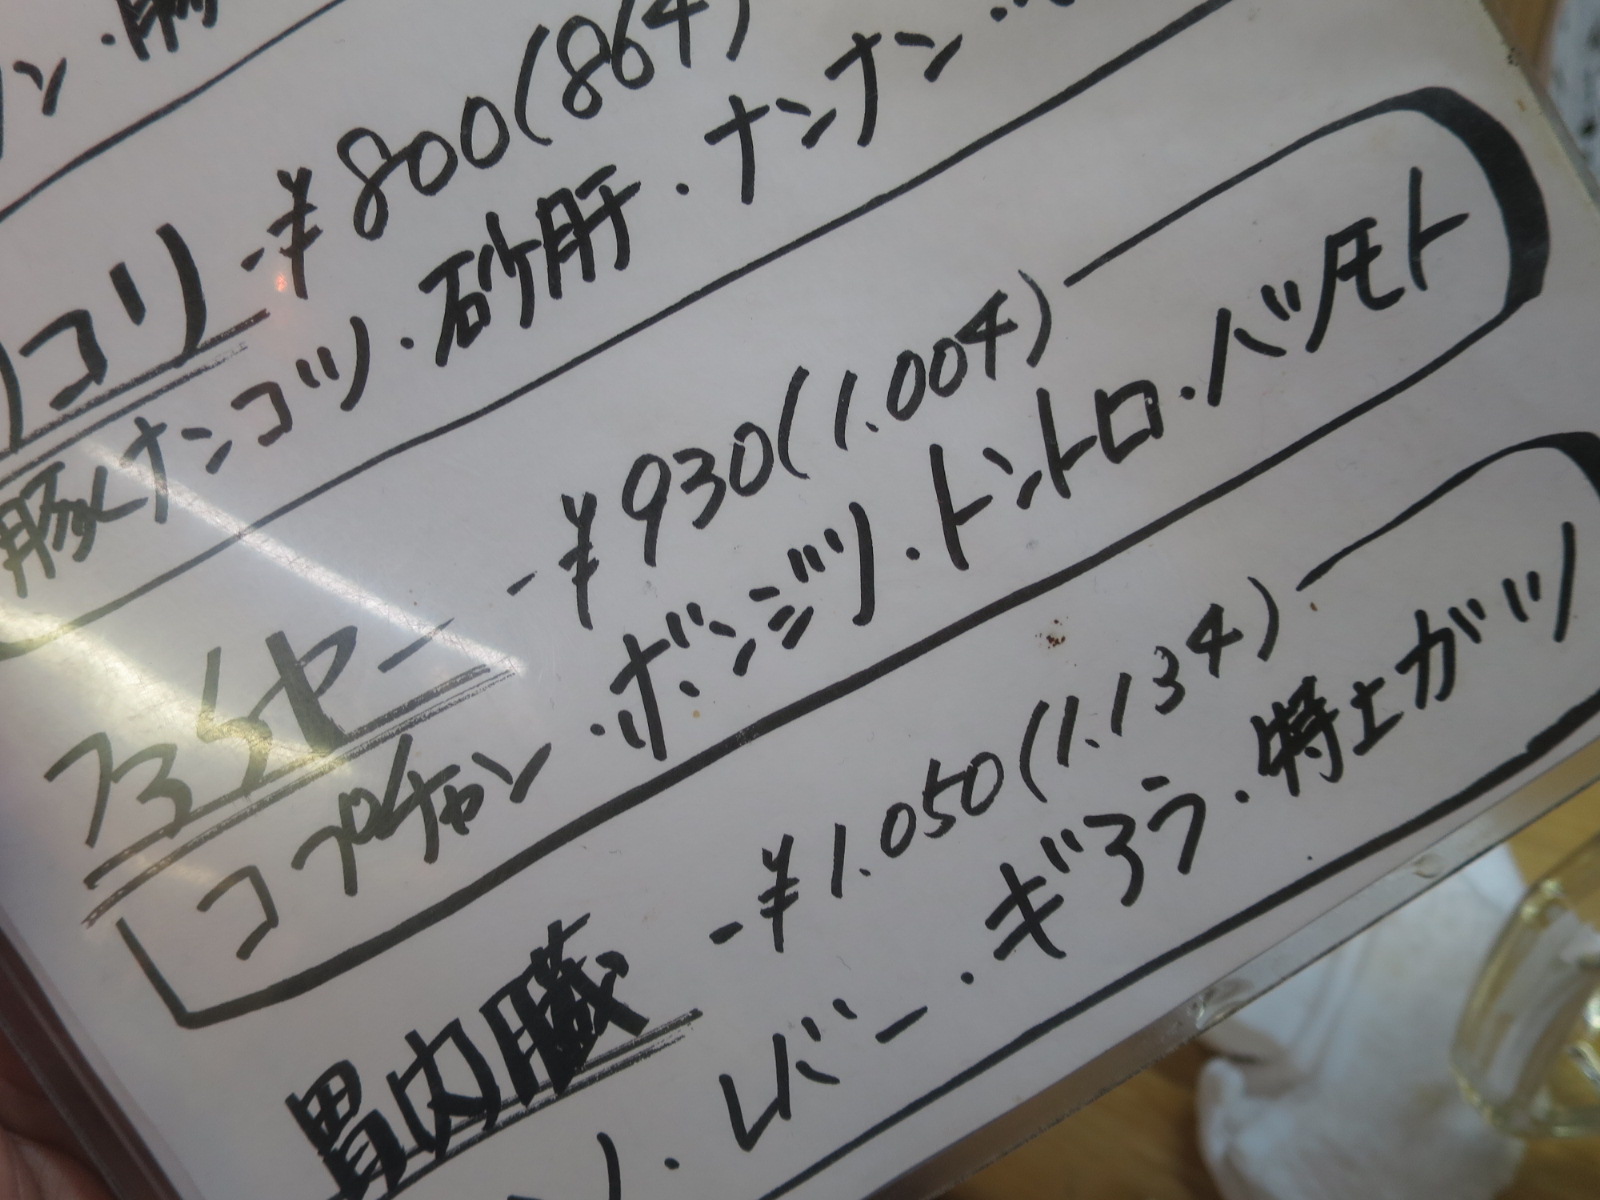 コリ -¥800(864)
豚ナンコツ・砂肝・ナンナン
ファイヤー -¥930(1.004)
コプチャン・ボンジリ・トントロ・ハツモト
胃内臓 -¥1.050(1.134)
レバー・ギアラ・特上ガツ